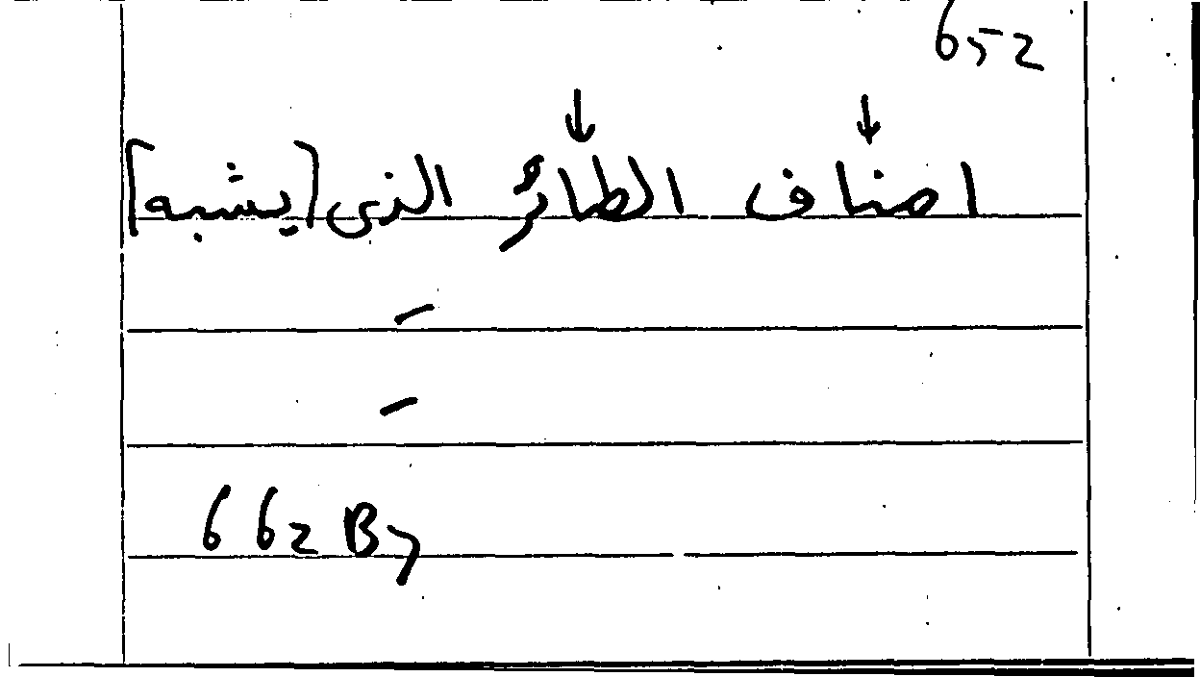 652
↓ ↓
اصناف الطائر الذى [يشبه]
–
–
662 B7